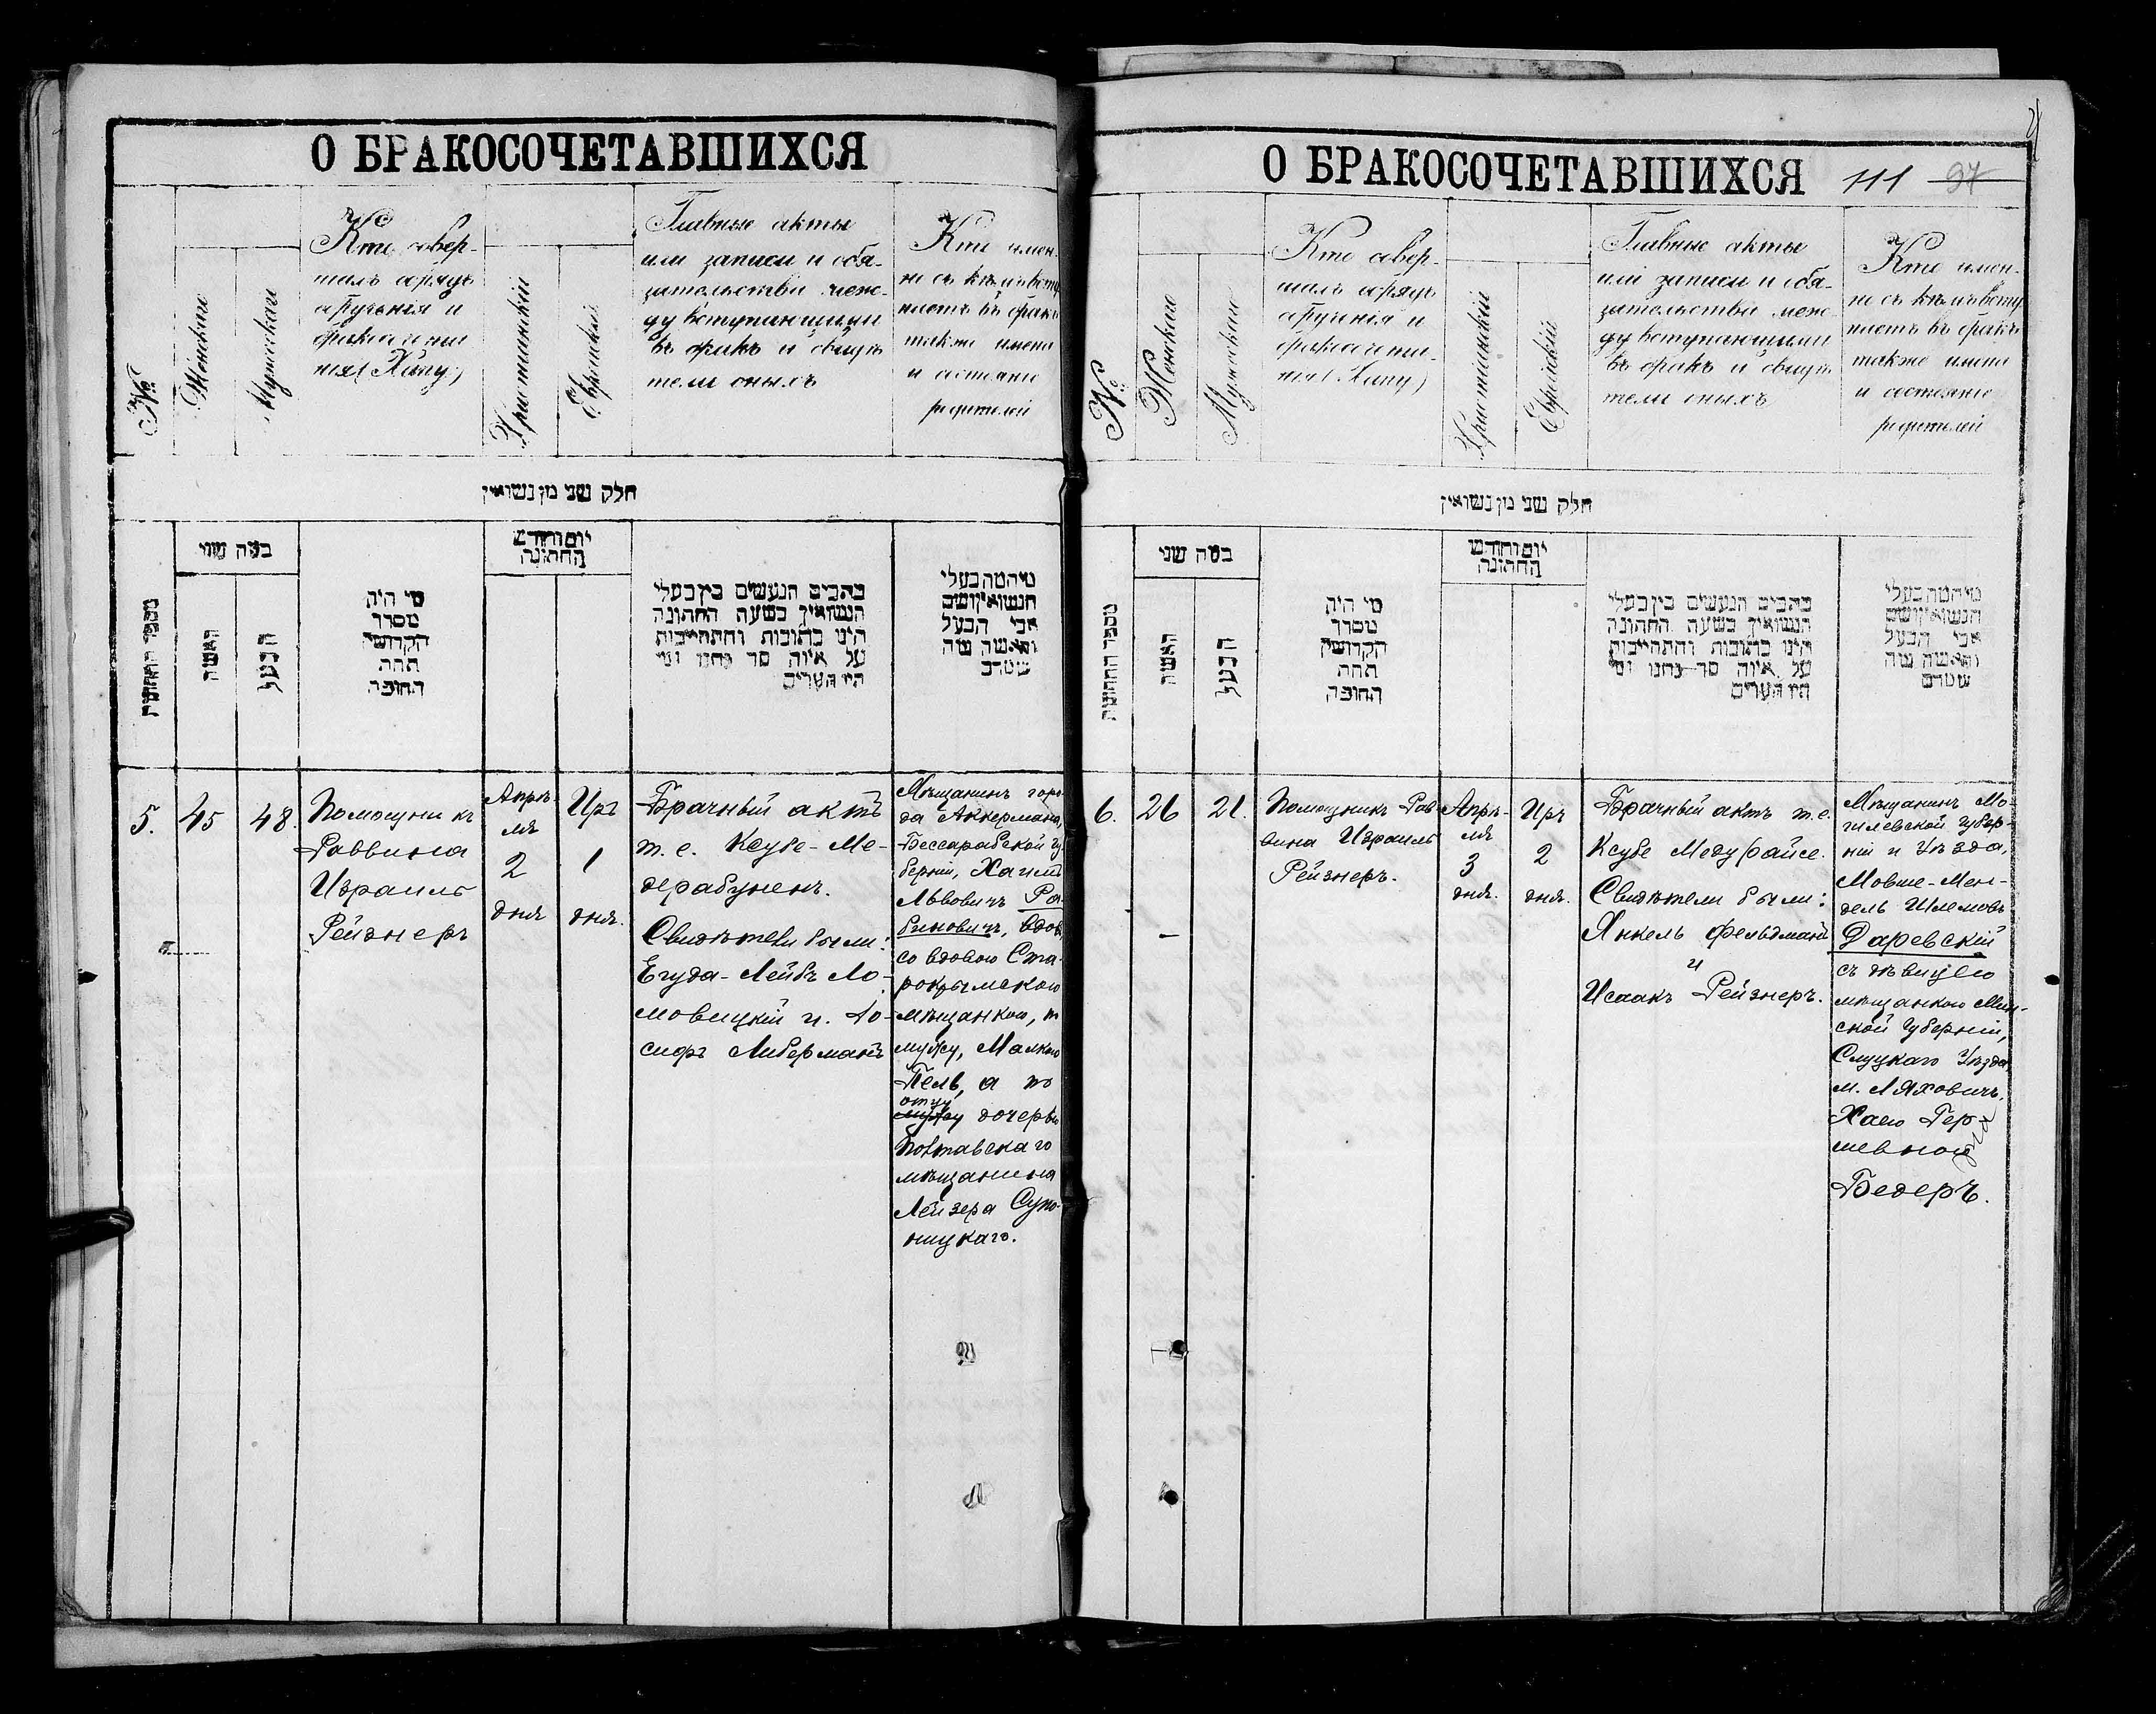 О БРАКОСОЧЕТАВШИХСЯ
№
Женскаго
Мужескаго
Кто совер-
шалъ обрядъ
обрученія и
бракосочета-
нія (Хупу)
Христіанскій
Еврейскій
Главные акты
или записи и обя-
зательства меж-
ду вступающими
въ бракъ и свидѣ
тели оныхъ
Кто имен-
но съ кѣмъ всту
паетъ въ бракъ
также имена
и состояніе
родителей
חלק שני מן נשואין
מספר החתונות
כמה שני
האשה
הבעל
מי היה
מסדר
הקדושין
תחת
החופה
יום וחדש
החתונה
כתבים הנעשים בין בעלי
הנשואין בשעה החתונה
היינו כתובות והתחייבות
על איזה סך
מי המה בעלי
הנשואין ושם
אבי הבעל
והאשה
5.
45
48.
Помощникъ
Раввина
Израиль
Рейзнеръ
Апрѣ-
ля
2
дня
Иръ
1
дня.
Брачный актъ
т. е. Ксубе-Ме-
дерабуненъ.
Свидѣтели были:
Егуда-Лейбъ Ло-
мовицкій и. Іо-
сифъ Либерманъ
Мѣщанинъ горо-
да Аккермана,
Бессарабской гу
берніи, Хаимъ
Львовичъ Ра-
биновичъ, вдов.
со вдовою Ста-
рокрымскою
мѣщанкою, по
мужу, Малкою
Пель, а по
отцу
мужу дочерью
Полтавскаго
мѣщанина
Лейзера Супо-
ницкаго.
О БРАКОСОЧЕТАВШИХСЯ 111 97
№
Женскаго
Мужескаго
Кто совер-
шалъ обрядъ
обрученія и
бракосочета-
нія (Хупу)
Христіанскій
Еврейскій
Главные акты
или записи и обя-
зательства меж-
ду вступающими
въ бракъ и свидѣ
тели оныхъ
Кто имен-
но съ кѣмъ всту
паетъ въ бракъ
также имена
и состояніе
родителей
חלק שני מן נשואין
מספר החתונות
כמה שני
האשה
הבעל
מי היה
מסדר
הקדושין
תחת
החופה
יום וחדש
החתונה
כתבים הנעשים בין בעלי
הנשואין בשעה החתונה
היינו כתובות והתחייבות
על איזה סך
מי המה בעלי
הנשואין ושם
אבי הבעל
והאשה
6.
26
21.
Помощникъ Рав
вина Израиль
Рейзнеръ.
Апрѣ-
ля
3
дня.
Иръ
2
дня.
Брачный актъ т. е.
Ксубе Медурайсе.
Свидѣтели были:
Янкель Фельдманъ
и
Исаакъ Рейзнеръ.
Мѣщанинъ Мо-
гилевской губер-
ніи и Уѣзда,
Мовше-Мен-
дель Шлемовъ
Даревскій
съ дѣвицею
мѣщанкою Мин-
ской губерніи,
Слуцкаго Уѣзда
м. Ляховичъ,
Хаею Гер-
шевной
Бедеръ.